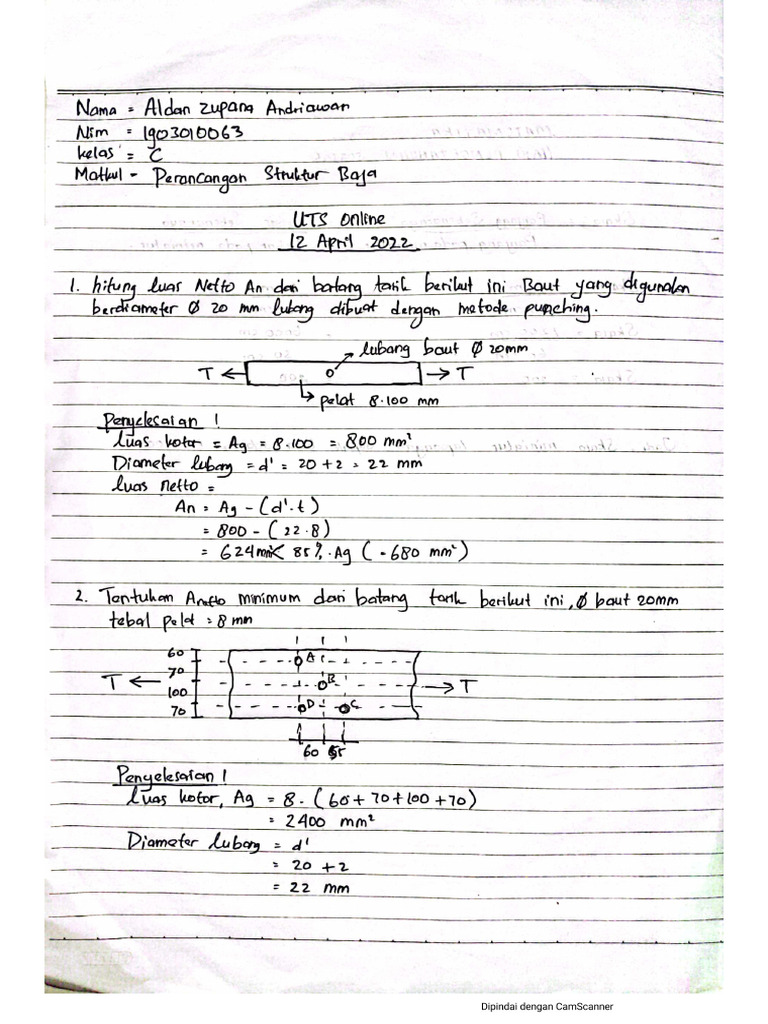 Nama = Aldan Zupana Andriawan
Nim = 1903010063
kelas = C
Matkul - Perancangan Struktur Baja
UTS Online
12 April 2022
1. hitung luas Netto An dari batang tarik berikut ini Baut yang digunakan
berdiameter Ø 20 mm lubang dibuat dengan metode punching.
lubang baut Ø 20mm
T T
pelat 8.100 mm
Penyelesaian !
Luas kotor = Ag = 8.100 = 800 mm²
Diameter lubang = d' = 20 + 2 = 22 mm
luas netto =
An = Ag - (d'.t)
= 800 - (22.8)
= 624mm² < 85%. Ag (= 680 mm²)
2. Tentukan Anetto minimum dari batang tarik berikut ini, Ø baut 20mm
tebal pelat = 8 mm
60 A
70
T B T
100
70 D C
60 55
Penyelesaian !
Luas kotor, Ag = 8. (60 + 70 + 100 + 70)
= 2400 mm²
Diameter lubang = d'
= 20 + 2
= 22 mm
Dipindai dengan CamScanner